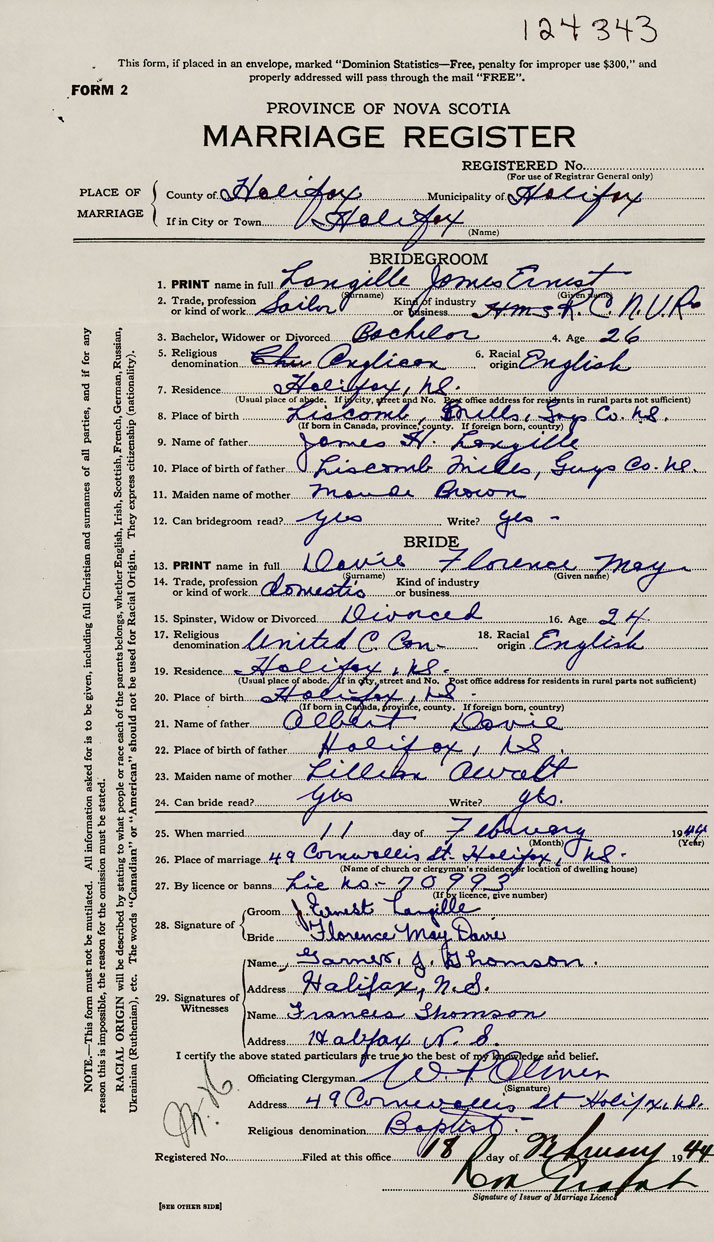 124343
This form, if placed in an envelope, marked "Dominion Statistics—Free, penalty for improper use $300," and
properly addressed will pass through the mail "FREE".
FORM 2
PROVINCE OF NOVA SCOTIA
MARRIAGE REGISTER
REGISTERED No.
(For use of Registrar General only)
PLACE OF MARRIAGE
County of Halifax Municipality of Halifax
If in City or Town Halifax
(Name)
BRIDEGROOM
1. PRINT name in full Langille James Ernest
(Surname) (Given name)
2. Trade, profession or kind of work Sailor Kind of industry or business H.M.S. R.C.N.V.R.
3. Bachelor, Widower or Divorced Bachelor 4. Age 26
5. Religious denomination Anglican 6. Racial origin English
7. Residence Halifax, N.S.
(Usual place of abode. If in city, street and No. Post office address for residents in rural parts not sufficient)
8. Place of birth Liscomb, Mills, Guys Co. N.S.
(If born in Canada, province, county. If foreign born, country)
9. Name of father James H. Langille
10. Place of birth of father Liscomb Mills, Guys Co. N.S.
11. Maiden name of mother Maude Brown
12. Can bridegroom read? yes Write? yes -
BRIDE
13. PRINT name in full Davie Florence May
(Surname) (Given name)
14. Trade, profession or kind of work domestic Kind of industry or business
15. Spinster, Widow or Divorced Divorced 16. Age 24
17. Religious denomination United C. Can- 18. Racial origin English
19. Residence Halifax, N.S.
(Usual place of abode. If in city, street and No. Post office address for residents in rural parts not sufficient)
20. Place of birth Halifax, N.S -
(If born in Canada, province, county. If foreign born, country)
21. Name of father Albert Davie
22. Place of birth of father Halifax, N.S.
23. Maiden name of mother Lillian Awalt
24. Can bride read? yes Write? yes.
25. When married 11 day of February 1944
(Month) (Year)
26. Place of marriage 49 Cornwallis St. Halifax, N.S.
(Name of church or clergyman's residence or location of dwelling house)
27. By licence or banns Lic no.- 70993
(If by licence, give number)
28. Signature of
Groom J. Ernest Langille
Bride Florence May Davie
29. Signatures of Witnesses
Name Garner. J. Thomson.
Address Halifax, N.S.
Name Frances Thomson
Address Halifax N.S.
I certify the above stated particulars are true to the best of my knowledge and belief.
Officiating Clergyman W. P. Oliver
(Signature)
Address 49 Cornwallis St Halifax, N.S.
Religious denomination Baptist.
Registered No. Filed at this office 18 day of February 1944
Signature of Issuer of Marriage Licence
[SEE OTHER SIDE]
NOTE.—This form must not be mutilated. All information asked for is to be given, including full Christian and surnames of all parties, and if for any
reason this is impossible, the reason for the omission must be stated.
RACIAL ORIGIN will be described by stating to what people or race each of the parents belongs, whether English, Irish, Scottish, French, German, Russian,
Ukrainian (Ruthenian), etc. The words "Canadian" or "American" should not be used for Racial Origin. They express citizenship (nationality).